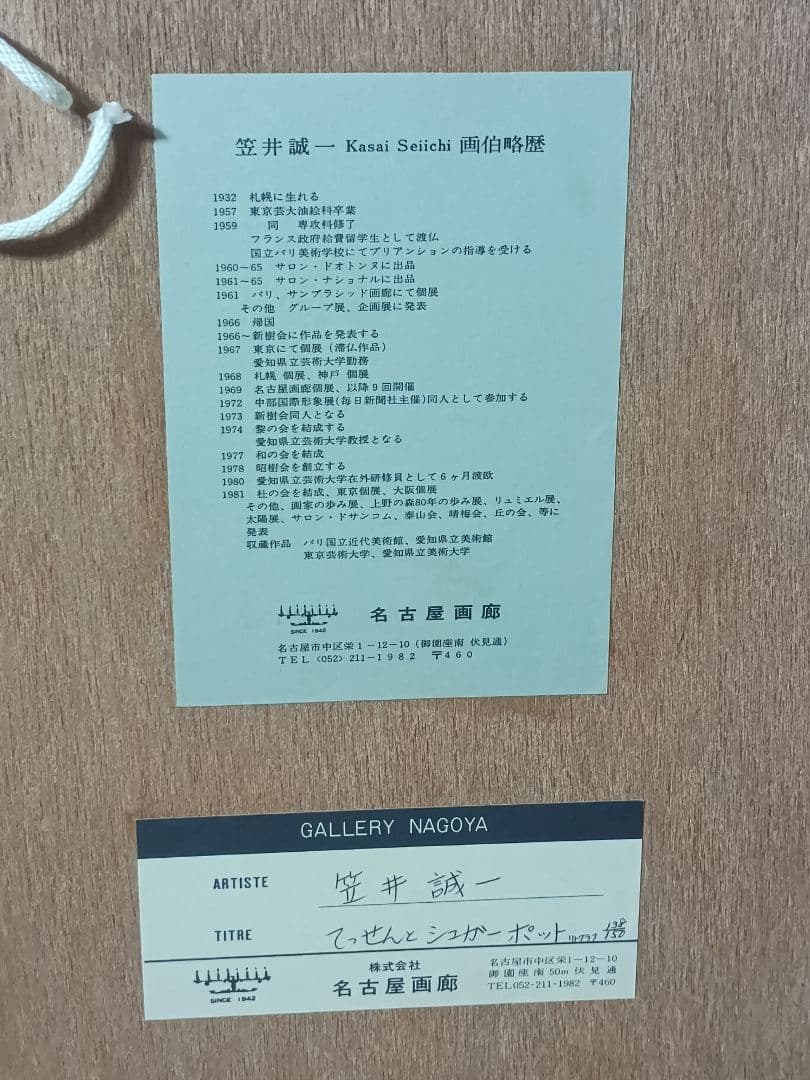 笠井誠一 Kasai Seiichi 画伯略歴
1932 札幌に生れる
1957 東京芸大油絵科卒業
1959 同 専攻科修了
フランス政府給費留学生として渡仏
国立パリ美術学校にてブリアンションの指導を受ける
1960〜65 サロン・ドオトンヌに出品
1961〜65 サロン・ナショナルに出品
1961 パリ、サンプラシッド画廊にて個展
その他 グループ展、企画展に発表
1966 帰国
1966〜新樹会に作品を発表する
1967 東京にて個展(滞仏作品)
愛知県立芸術大学勤務
1968 札幌 個展、神戸 個展
1969 名古屋画廊個展、以降9回開催
1972 中部国際形象展(毎日新聞社主催)同人として参加する
1973 新樹会同人となる
1974 黎の会を結成する
愛知県立芸術大学教授となる
1977 和の会を結成
1978 昭樹会を創立する
1980 愛知県立芸術大学在外研修員として6ヶ月渡欧
1981 杜の会を結成、東京個展、大阪個展
その他、画家の歩み展、上野の森80年の歩み展、リュミエル展、
太陽展、サロン・ドサンコム、泰山会、晴梅会、丘の会、等に
発表
収蔵作品 パリ国立近代美術館、愛知県立美術館
東京芸術大学、愛知県立美術大学
SINCE 1942
名古屋画廊
名古屋市中区栄1-12-10(御園座南 伏見通)
TEL〈052〉211-1982 〒460
GALLERY NAGOYA
ARTISTE 笠井誠一
TITRE てっせんとシュガーポット リトグラフ 138/150
SINCE 1942
株式会社
名古屋画廊
名古屋市中区栄1-12-10
御園座南50m伏見通
TEL052-211-1982 〒460